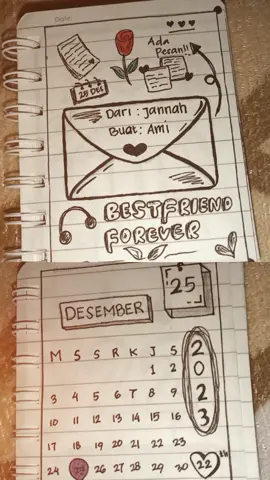 Date:
Ada
Pesan!!
25 DEC
Dari : Jannah
Buat : Ami
BESTFRIEND
FOREVER
25
DESEMBER
2023
M S S R K J S
1 2
3 4 5 6 7 8 9
10 11 12 13 14 15 16
17 18 19 20 21 22 23
24 25 26 27 28 29 30
22th